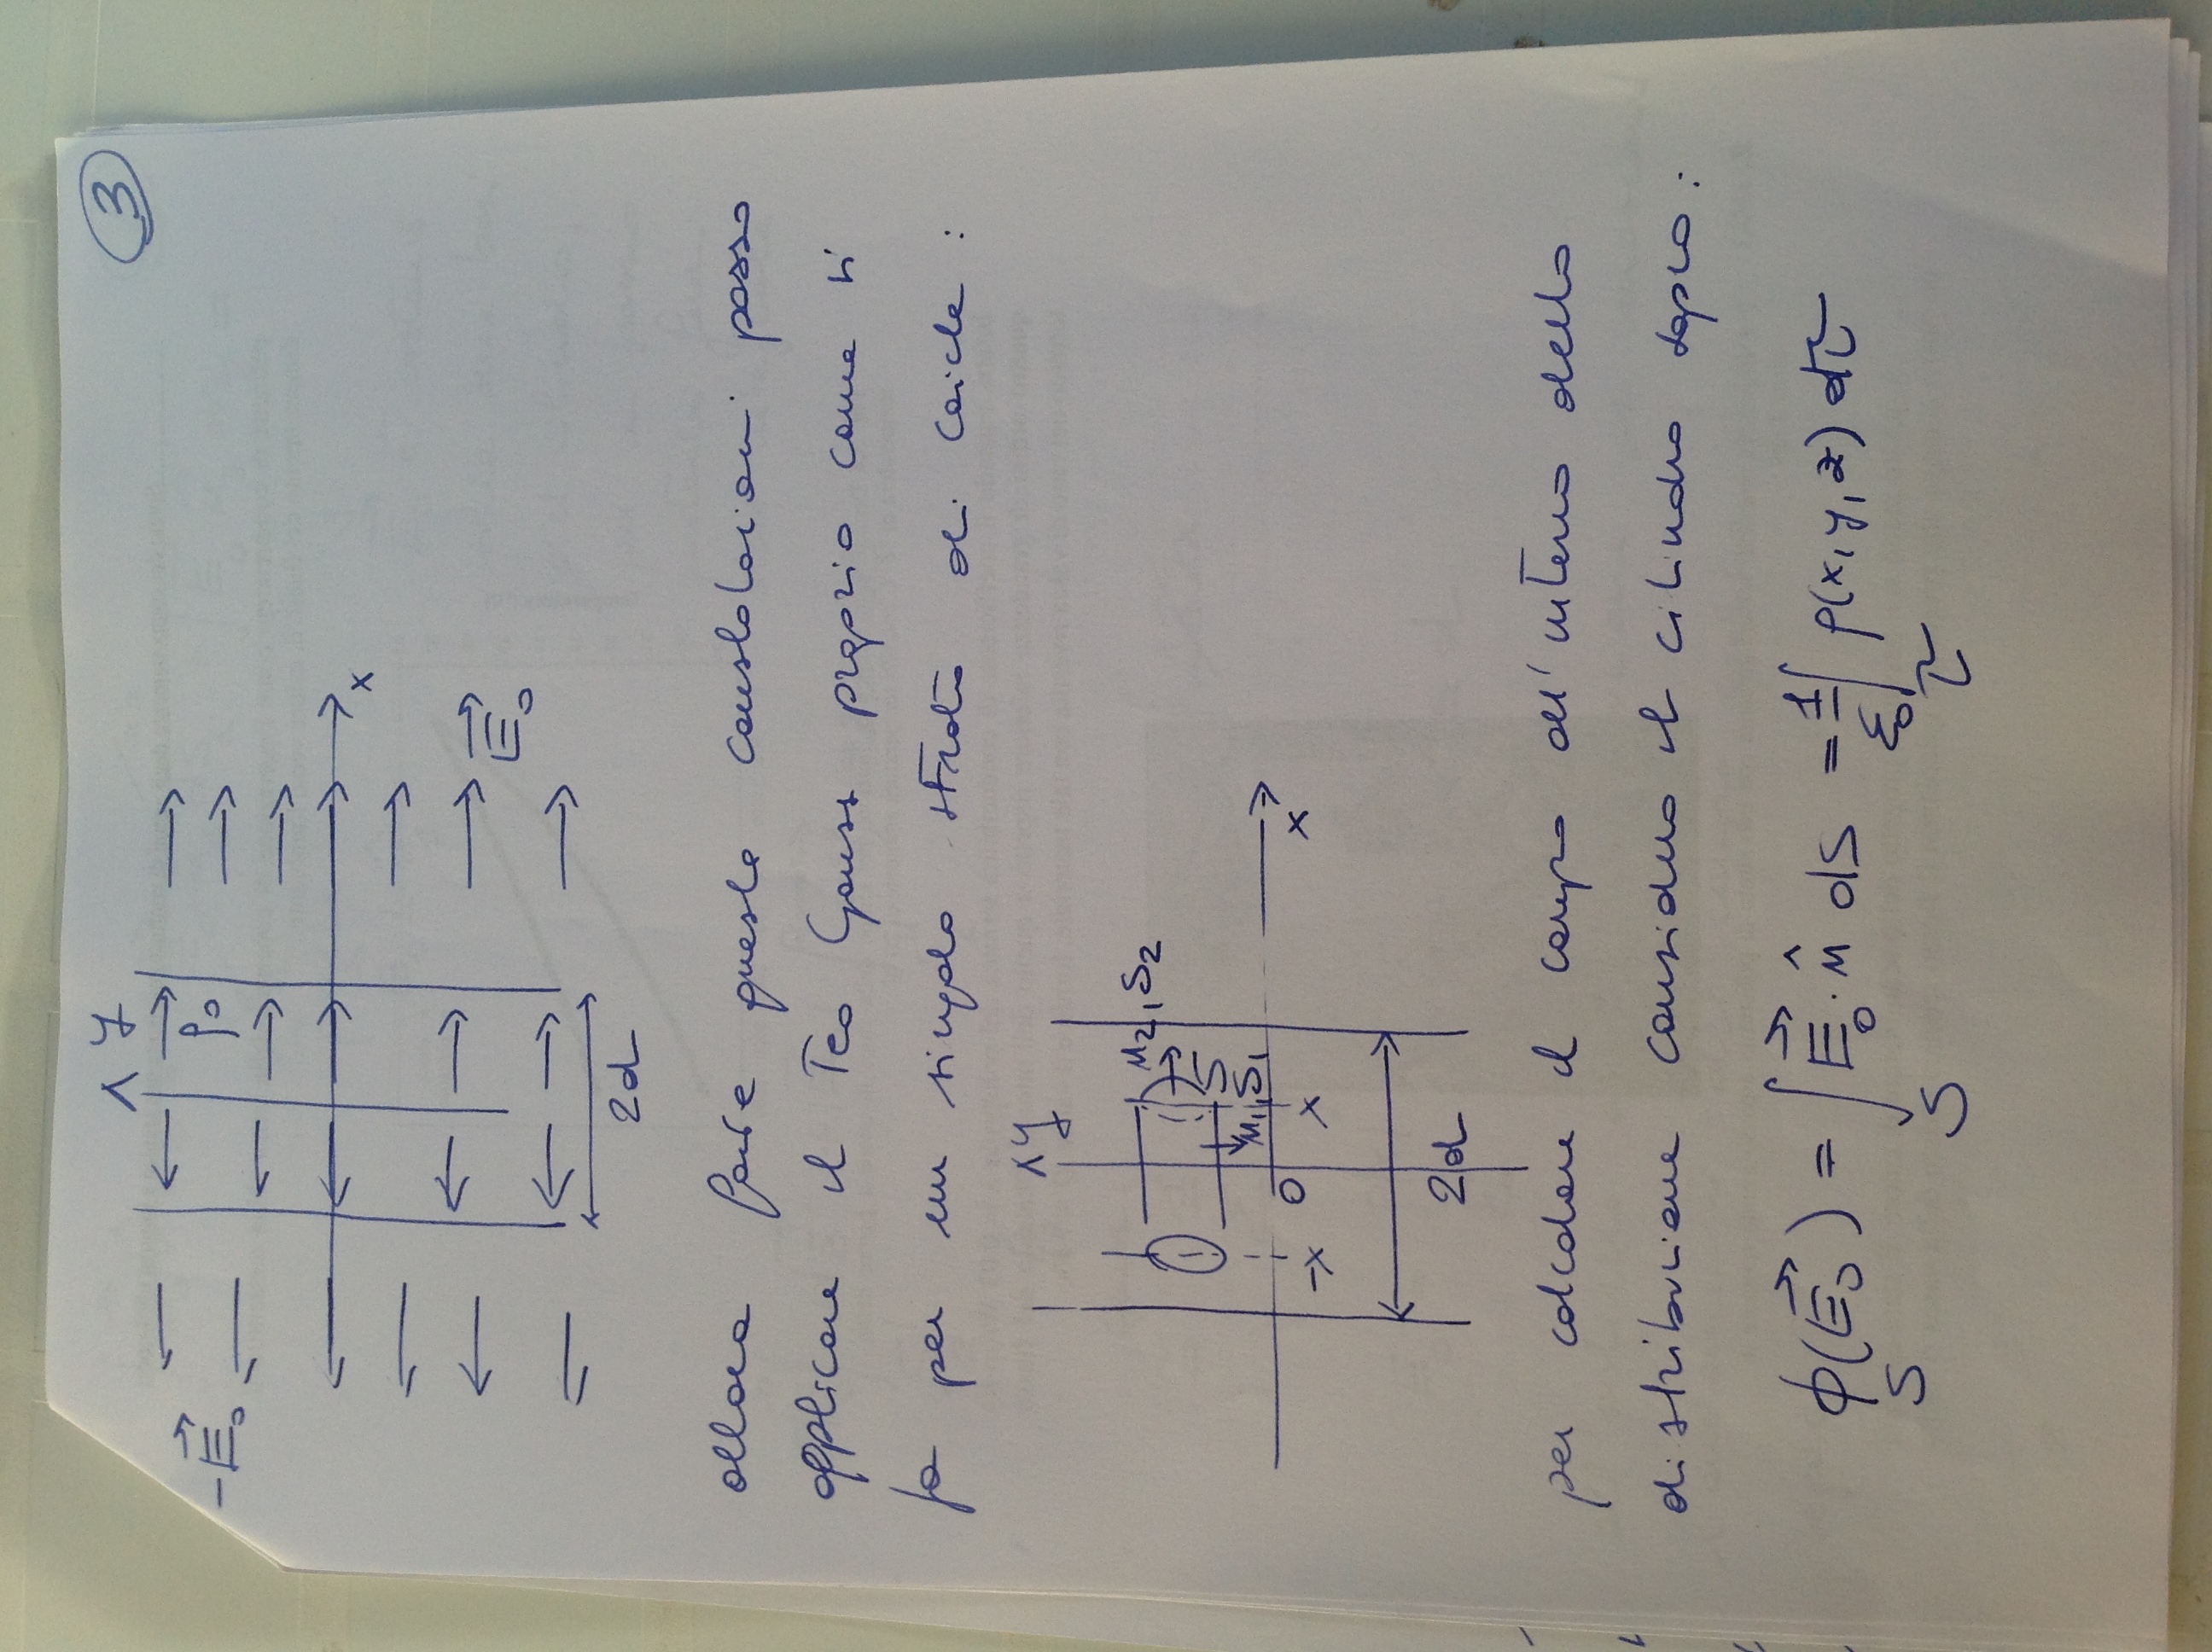 3
y
-E⃗₀
ρ₀
x
E⃗₀
2d
allora fatte queste constatazioni posso
applicare il Teo Gauss proprio come si
fa per un singolo strato di cariche :
y
n₂, S₂
S
n₁, S₁
-x 0 x x
2d
per calcolare il campo all'interno della
distribuzione considero il cilindro sopra :
ϕ(E⃗₀) = ∫ E⃗₀ · n̂ dS = 1/ε₀ ∫ ρ(x,y,z) dτ
S S τ